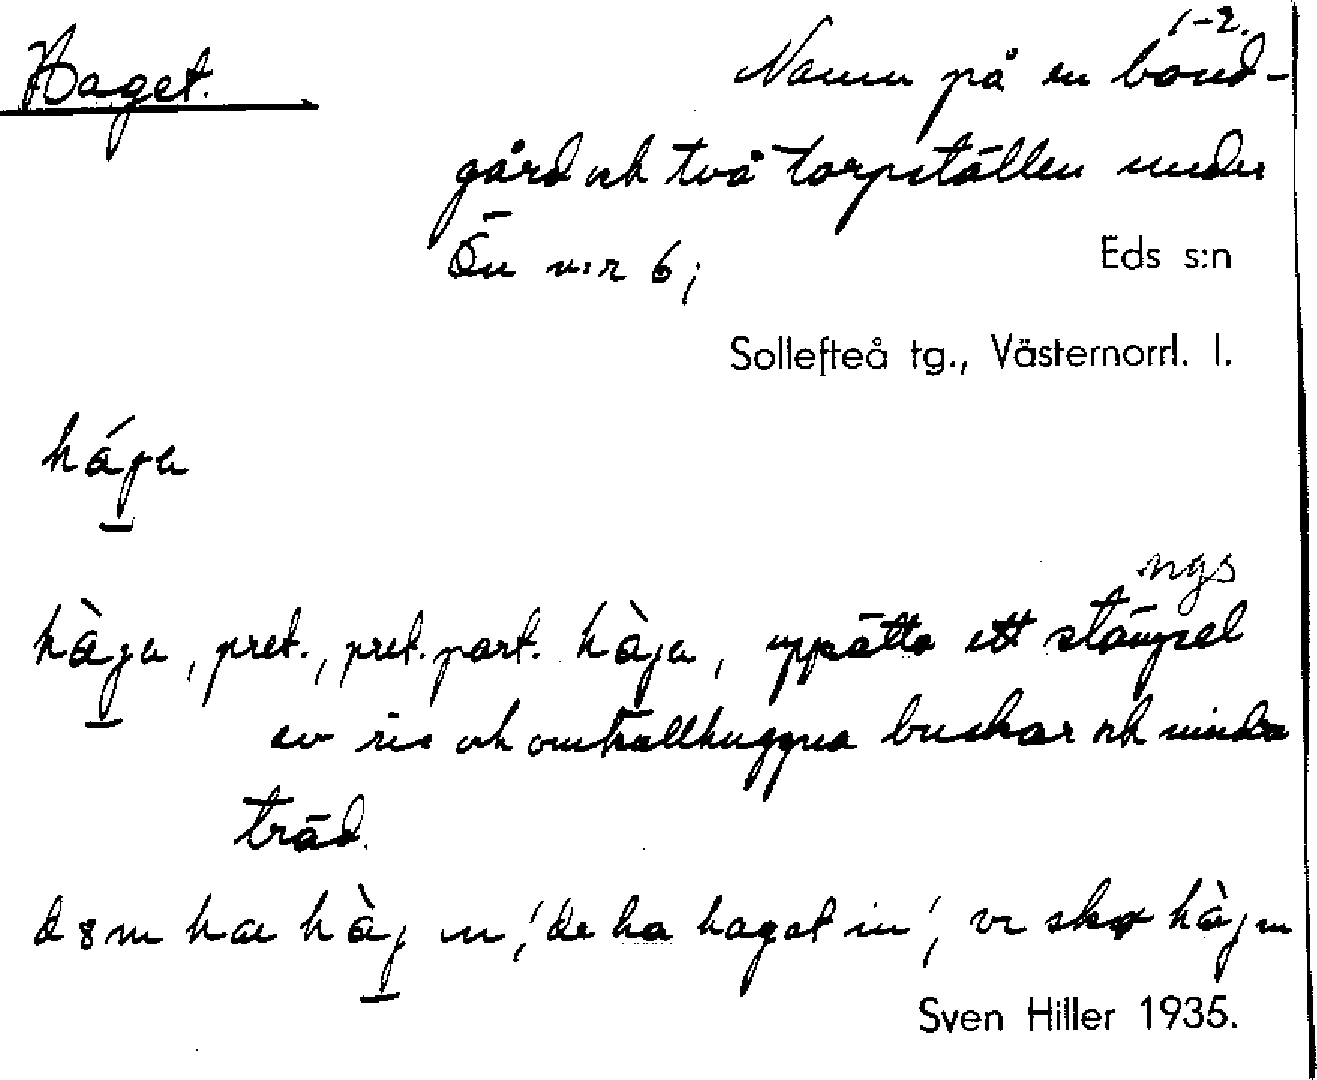 1-2.
Haget. Namn på en bond-
gård och två torpställen under
Ön n:r 6; Eds s:n
Sollefteå tg., Västernorrl. l.
hága
ngs
hàga, pret., pret. part. hàga, uppsätta ett stängsel
av ris och omkullhuggna buskar och mindre
träd.
ha hàg in, 'de ha hagat in', vi hàg in
Sven Hiller 1935.